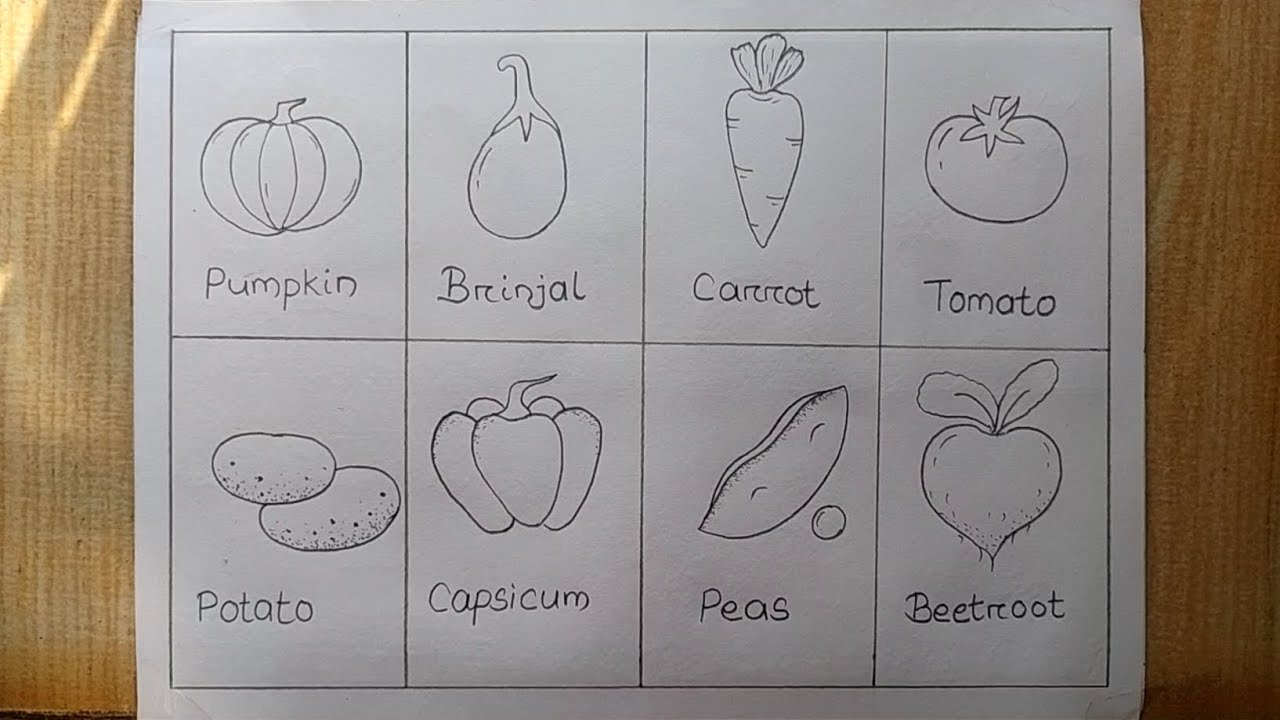 Pumpkin
Brinjal
Carrot
Tomato
Potato
Capsicum
Peas
Beetroot